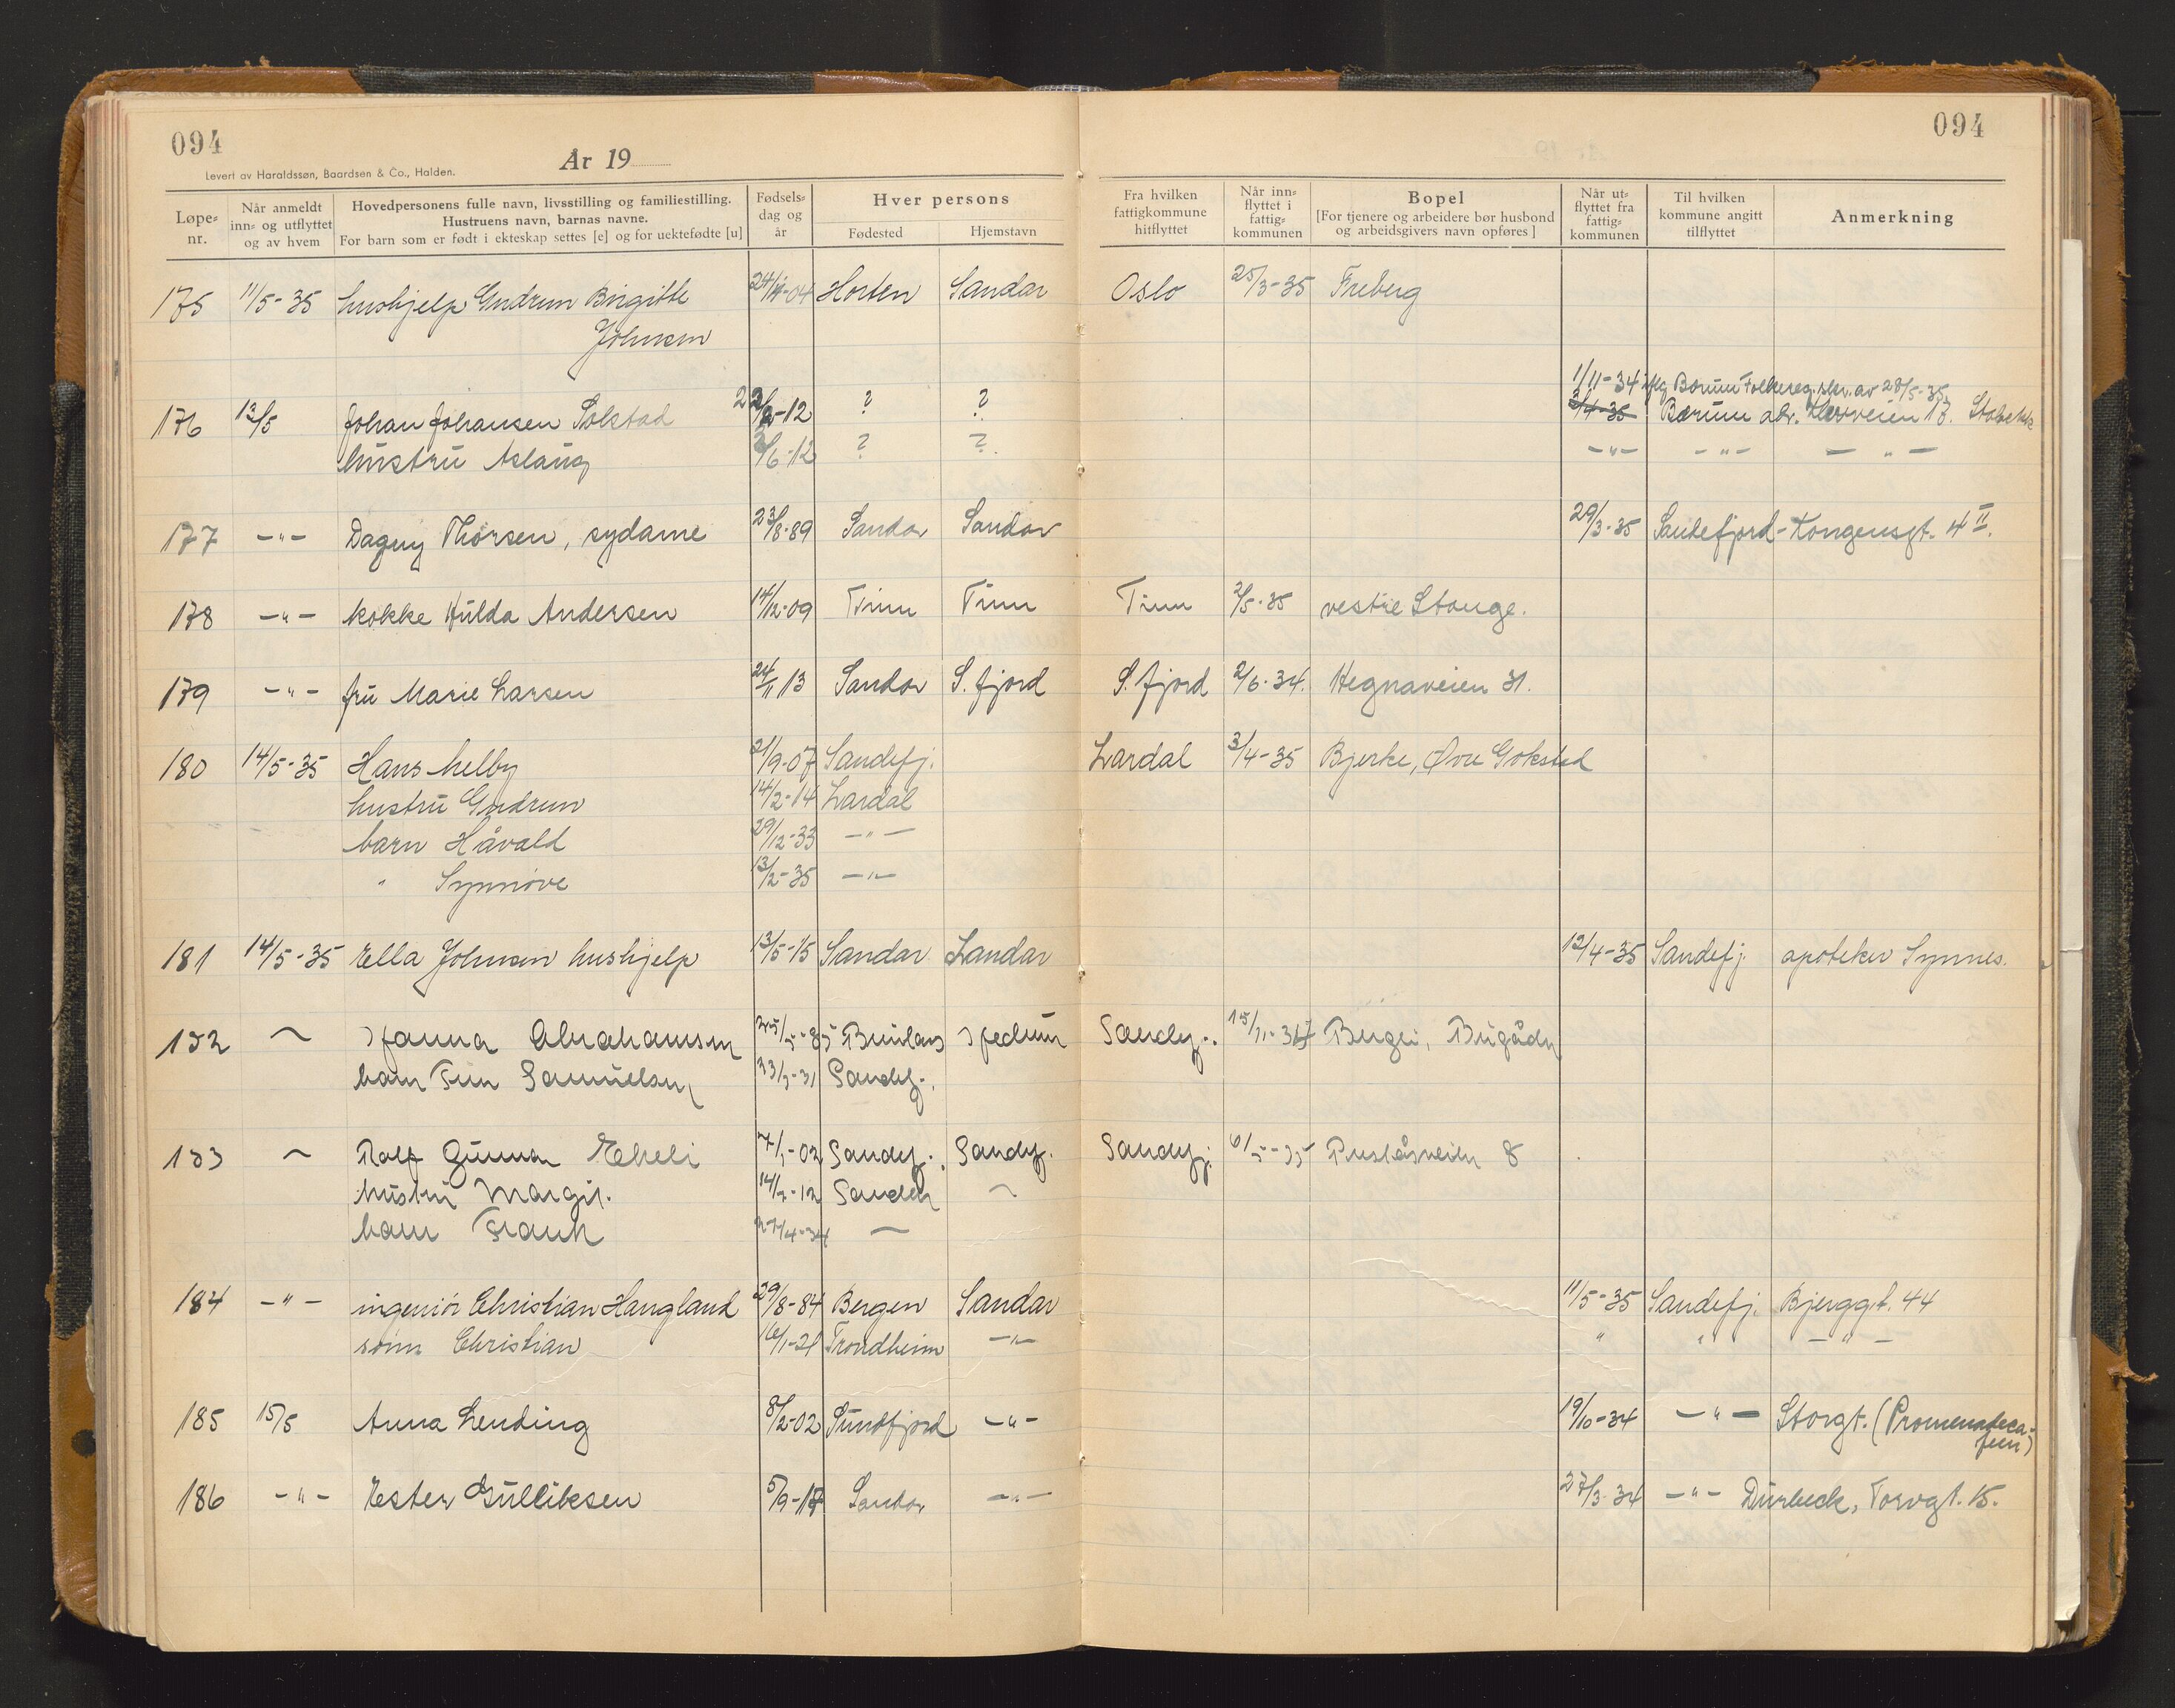 094
094
År 19
Levert av Haraldssøn, Baardsen & Co., Halden.
Løpe-nr. Når anmeldt inn- og utflyttet og av hvem Hovedpersonens fulle navn, livsstilling og familiestilling. Hustruens navn, barnas navne. For barn som er født i ekteskap settes [e] og for uektefødte [u] Fødsels-dag og år Hver persons Fødested Hjemstavn Fra hvilken fattigkommune hitflyttet Når inn-flyttet i fattig-kommunen Bopel [For tjenere og arbeidere bør husbond og arbeidsgivers navn opføres] Når ut-flyttet fra fattig-kommunen Til hvilken kommune angitt tilflyttet Anmerkning
175 11/5-35 hushjelp Gudrun Birgitte Horten Sandar Oslo 25/3-35 Freberg
Johnsen
1/11-34 iflg Bærum Folkereg. skr. av 28/5-35.
176 13/5 Johan Johansen Solstad ? ? 3/4-35 Bærum adr.
hustru Aslaug 3/6-12 ? ? -"- -"- -"-
177 -"- Dagny Thorsen, sydame 23/8-89 Sandar Sandar 29/3-35 Sandefjord - Kongensgt. 4 II.
178 -"- kokke Hulda Andersen 14/12-09 Tinn Tinn Tinn 2/5-35 vestre Stange.
179 -"- fru Marie Larsen 24/11 13 Sandar S. fjord S. fjord 2/6-34. Hegnaveien 31.
180 14/5-35 Hans Melby 21/9-07 Sandefj. Lardal 3/4-35 Bjerke, Øvre Gokstad
hustru Gudrun 14/2-14 Lardal
barn Håvald 29/12-33 -"-
" Synnøve 13/2-35 -"-
181 14/5-35 Ella Johnsen hushjelp 13/5-15 Sandar Sandar 12/4-35 Sandefj. apoteker Synnes.
182 ~ Hanna Abrahamsen Brunlanes Hedrum Sandefj.
barn Finn Samuelsen Sandefj.
183 ~ Ralf Gunnar Ekeli Sandefj. Sandefj. Sandefj. 6/5-35 8
hustru Margit. Sandefj. ~
barn Frank 27/4-34 ~
184 -"- ingeniør Christian Haugland 29/8-84 Bergen Sandar 11/5-35 Sandefj. Bjerggt. 44
sønn Christian 16/1-21 Trondheim -"- " " -"-
185 15/5 Anna Lending 8/2-02 Sundfjord -"- 19/10-34 -"- Storgt. (Promenadeca-
feen)
186 -"- Ester Gulliksen 5/9-17 Sandar -"- 27/3-34 -"- Durbeck, Torvgt. 15.